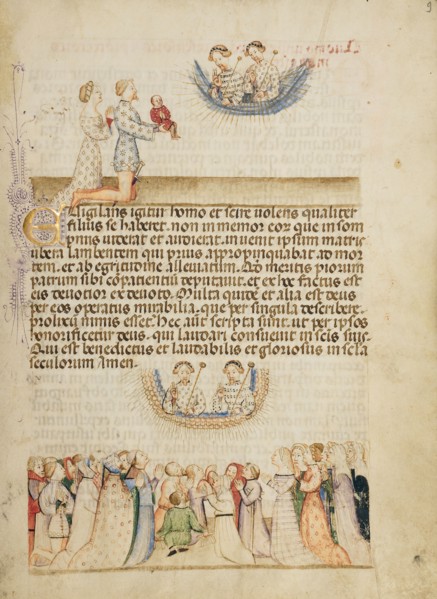 9
Euigilans igitur homo et scire uolens qualiter
filius se haberet. non in memor eor que in som
pnis uiderat et audierat. in uenit ipsum matris
ubera lambentem qui prius appropinquabat ad mor
tem. et ab egritudine alleuatum. Qd meritis piorum
patrum sibi copatientiū deputauit. et ex hoc factus est
eis deuotior ex deuoto. Multa quidē et alia est deus
per eos operatus mirabilia, que per singula describere
prolixū nimis esset. hec aūt scripta sunt. ut per ipsos
honorificetur deus. qui laudari consueuit in scīs suis.
Qui est benedictus et laudabilis et gloriosus in scla
seculorum Amen.